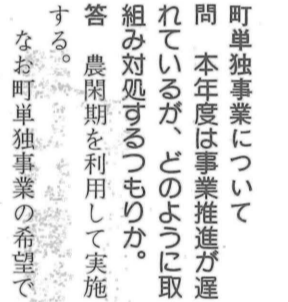 町単独事業について
問　本年度は事業推進が遅
れているが、どのように取
組み対処するつもりか。
答　農閑期を利用して実施
する。
なお町単独事業の希望で